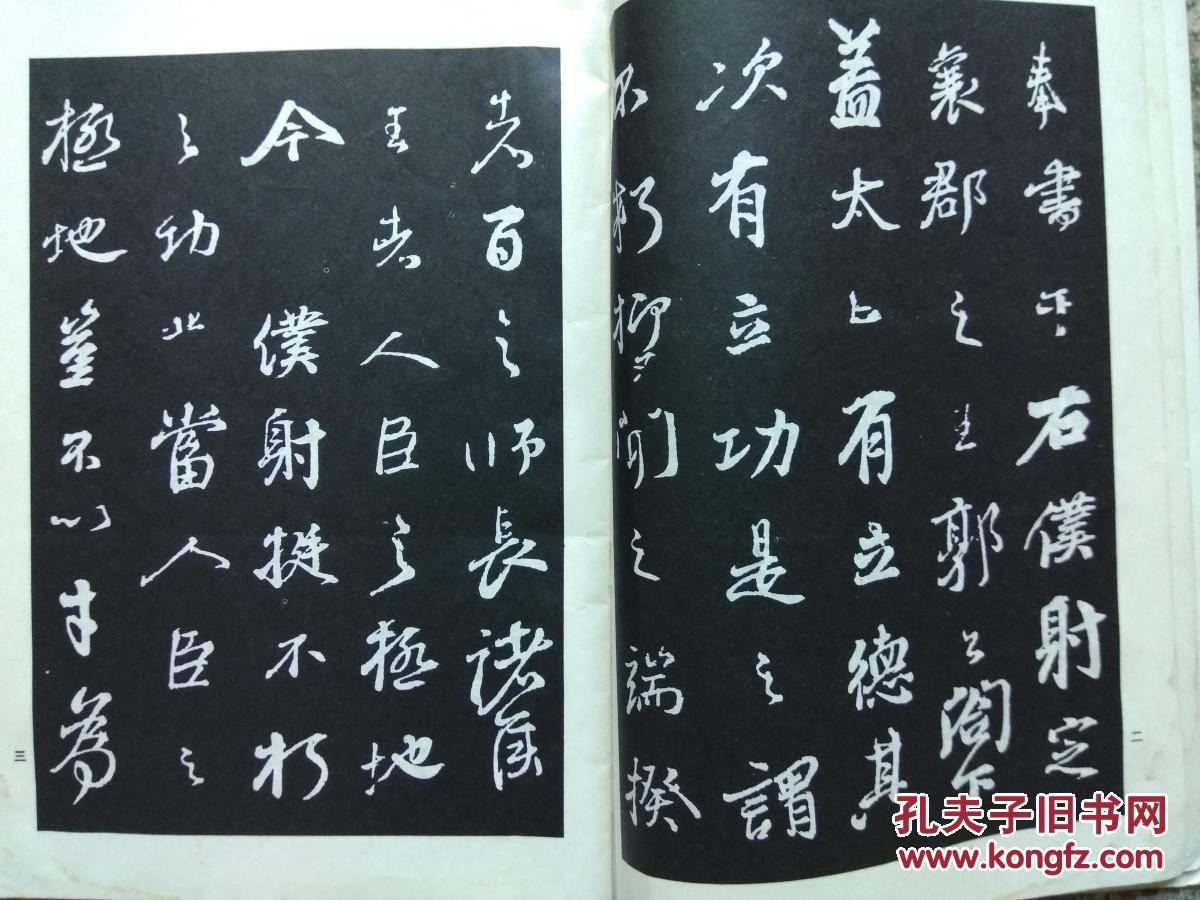 奉書于右僕射定
襄郡之王郭公閤下
蓋太上有立德其
次有立功是之謂
不朽抑又聞之端揆
者百寮之師長諸侯
王者人臣之極地
今僕射挺不朽
之功業當人臣之
極地豈不以才為
二
三
孔夫子旧书网
www.kongfz.com